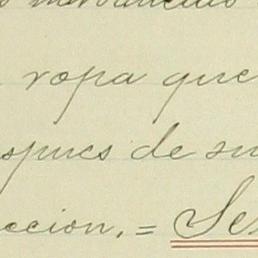 ropa que
spues de su
ccion. = Se